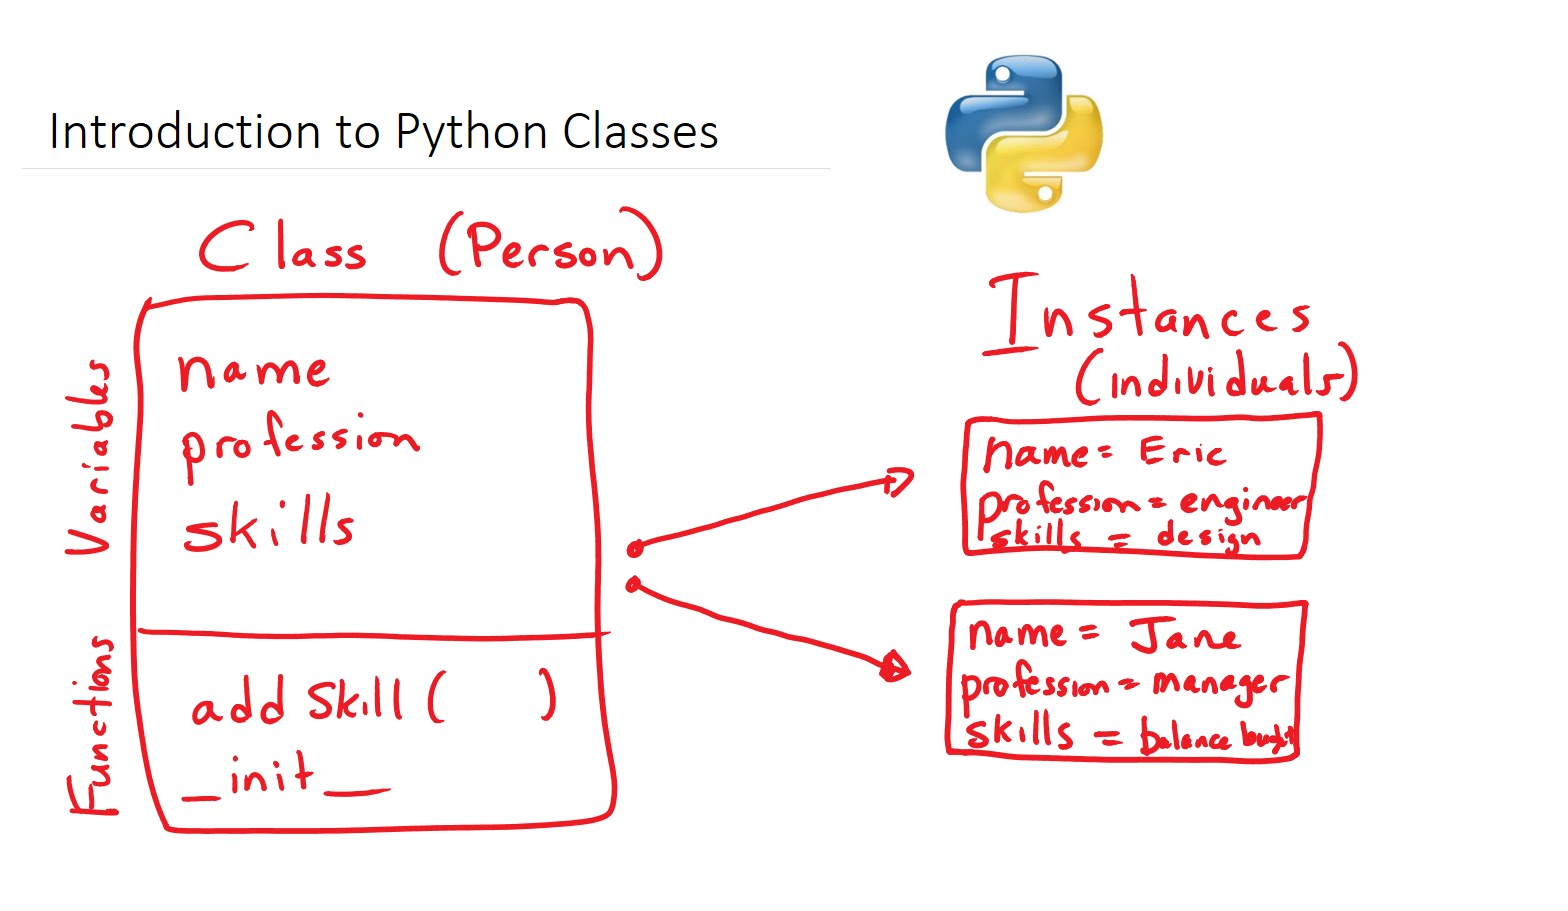 Introduction to Python Classes
Class (Person)
Variables
name
profession
skills
Functions
add Skill ( )
_init_
Instances
(individuals)
name= Eric
profession= engineer
skills = design
name = Jane
profession= manager
skills = balance